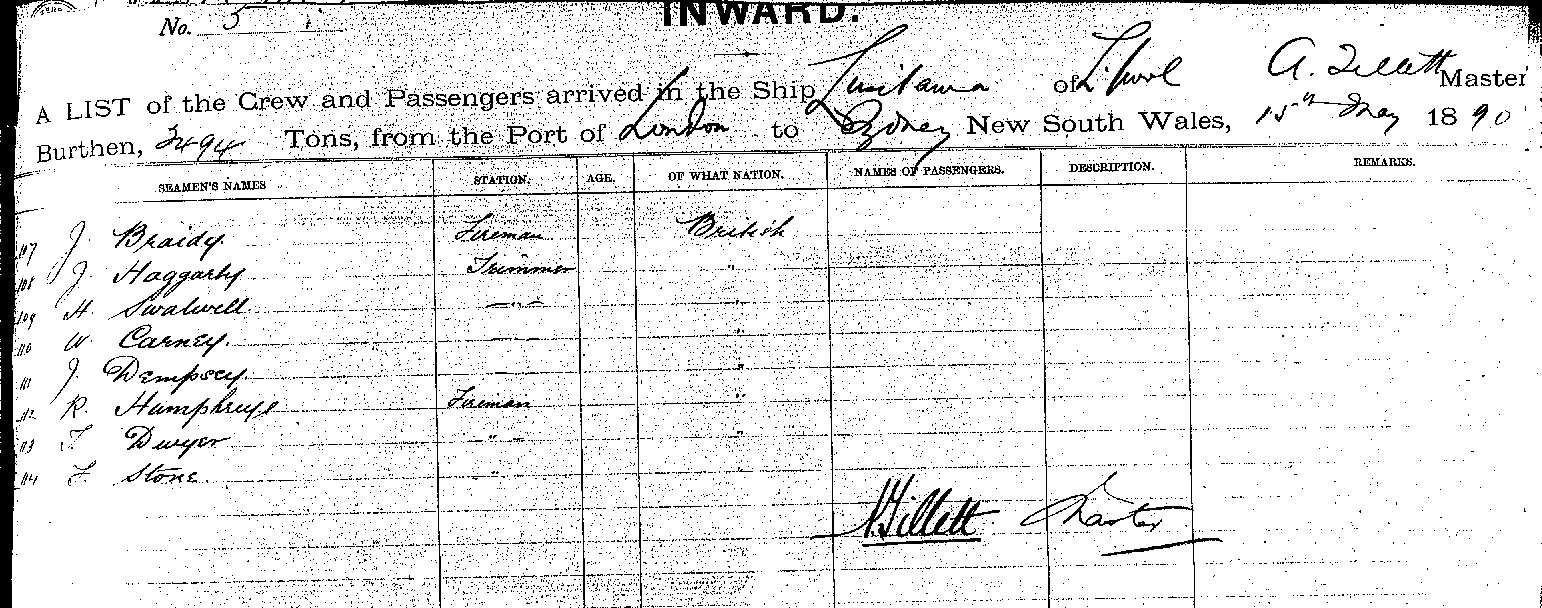 INWARD.
No. 5
A LIST of the Crew and Passengers arrived in the Ship Lusitania of L'pool A. Tillett Master
Burthen, 2494 Tons, from the Port of London to Sydney New South Wales, 15th May 1890
SEAMEN'S NAMES STATION. AGE. OF WHAT NATION. NAMES OF PASSENGERS. DESCRIPTION. REMARKS.
107 J. Braidy. Fireman British
108 J. Haggarty Trimmer "
109 H. Swalwell —"— "
110 W. Carney. "
111 J. Dempsey. "
112 R. Humphreys Fireman "
113 T. Dwyer " "
114 F. Stone. " "
A Tillett Master